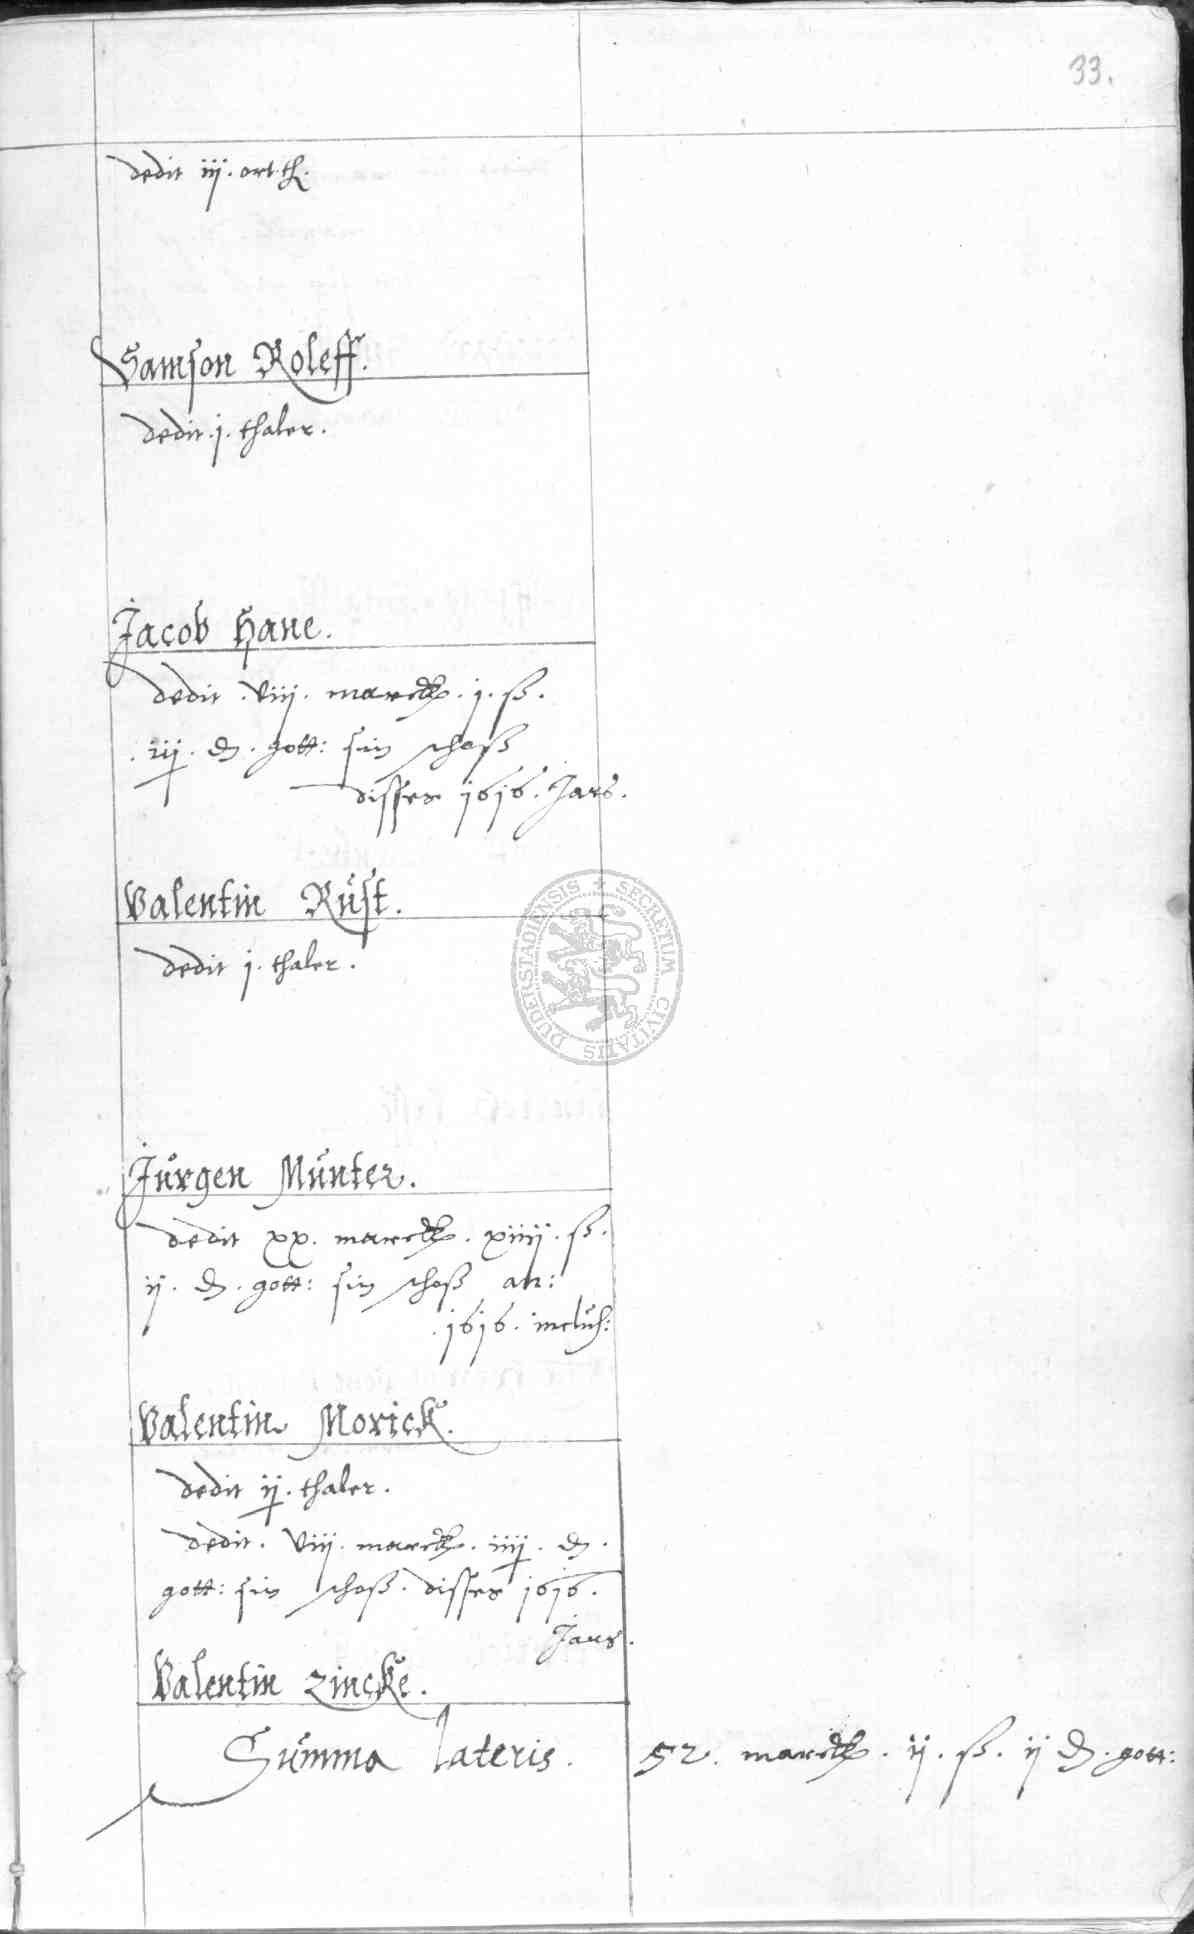 33.
dedit iij. ort th.
Samson Roleff.
dedit .j. thaler.
Jacob Hane.
dedit .viij. marck. j. ß.
.iij. d. gott: sin schoß
disses 1616. Jars.
Valentin Rust.
dedit j. thaler.
SECRETUM CIVITATIS DUDERSTADIENSIS
Jurgen Munter.
dedit xx. marck. xiiij. ß.
ij. d. gott: sin schoß an:
.1616. inclus:
Valentin Morick.
dedit ij. thaler.
dedit. viij. marck. iiij. d.
gott: sin schoß. disses 1616.
Jars.
Valentin Zincke.
Summa lateris. 52. marck. ij. ß. ij d. gott: